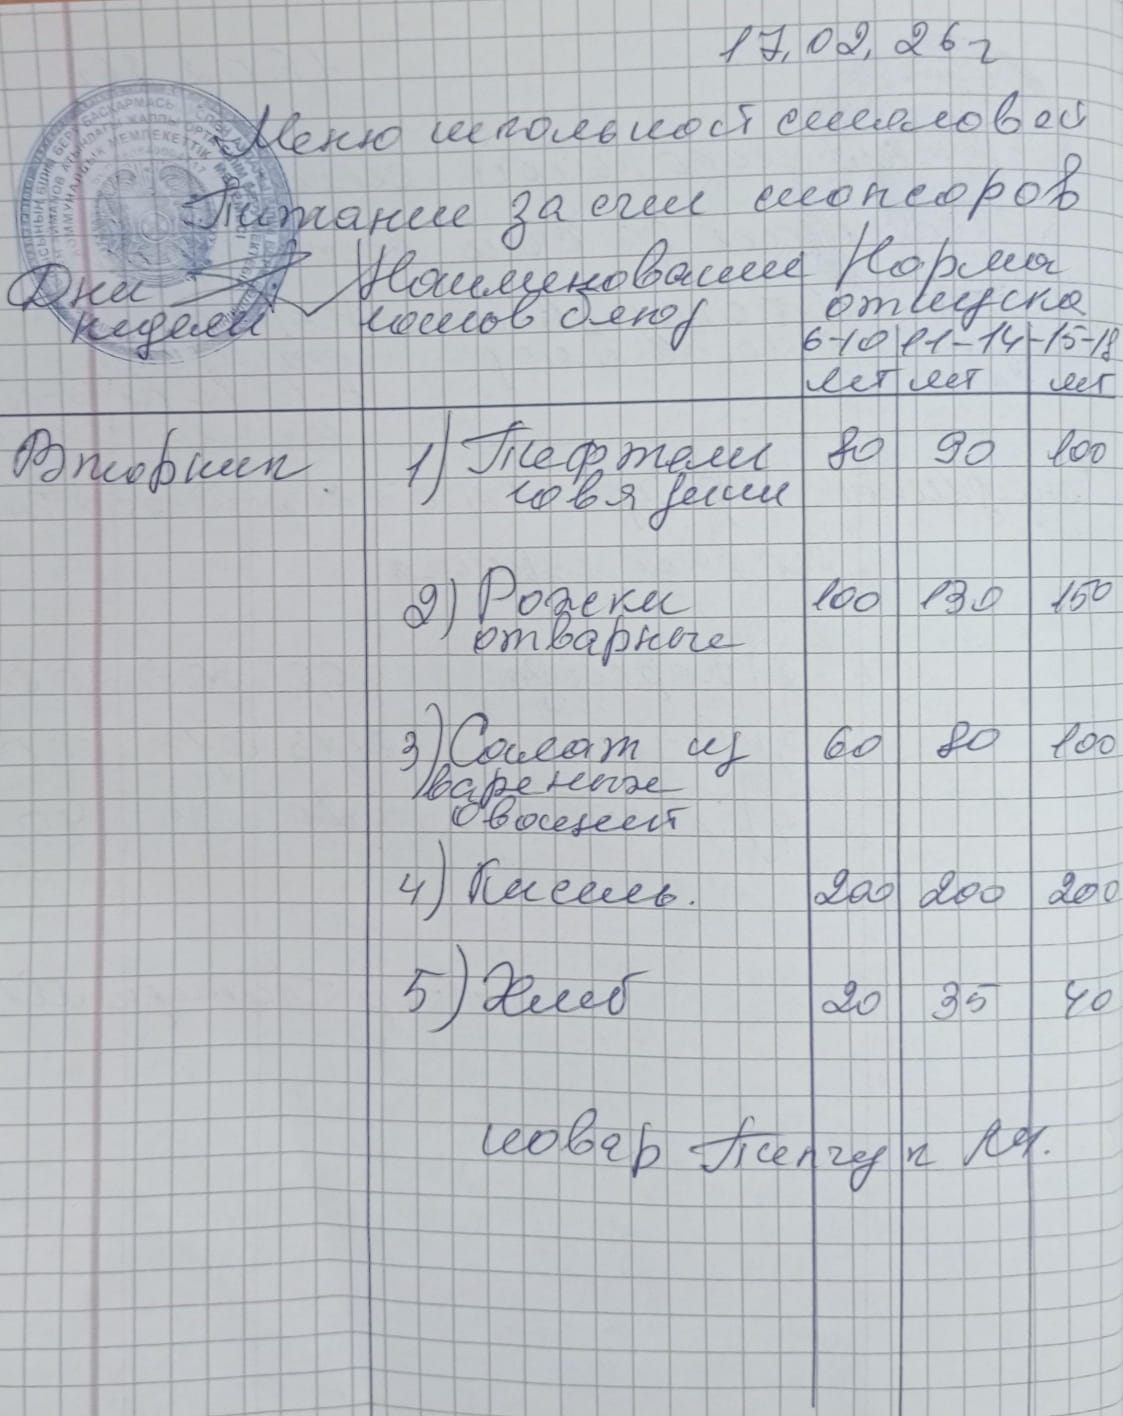 17.02.26г
Меню школьной столовой
Питание за счет спонсоров
Дни недели
Наименование
Норма
отпуска
блюд
6-10 11-14 15-18
лет лет лет
Вторник
1) Тефтели 80 90 100
говядины
2) Рожски 100 130 150
отварные
3) Салат из 60 80 100
вареных
овощей
4) Кисель. 200 200 200
5) Хлеб 20 35 40
повар